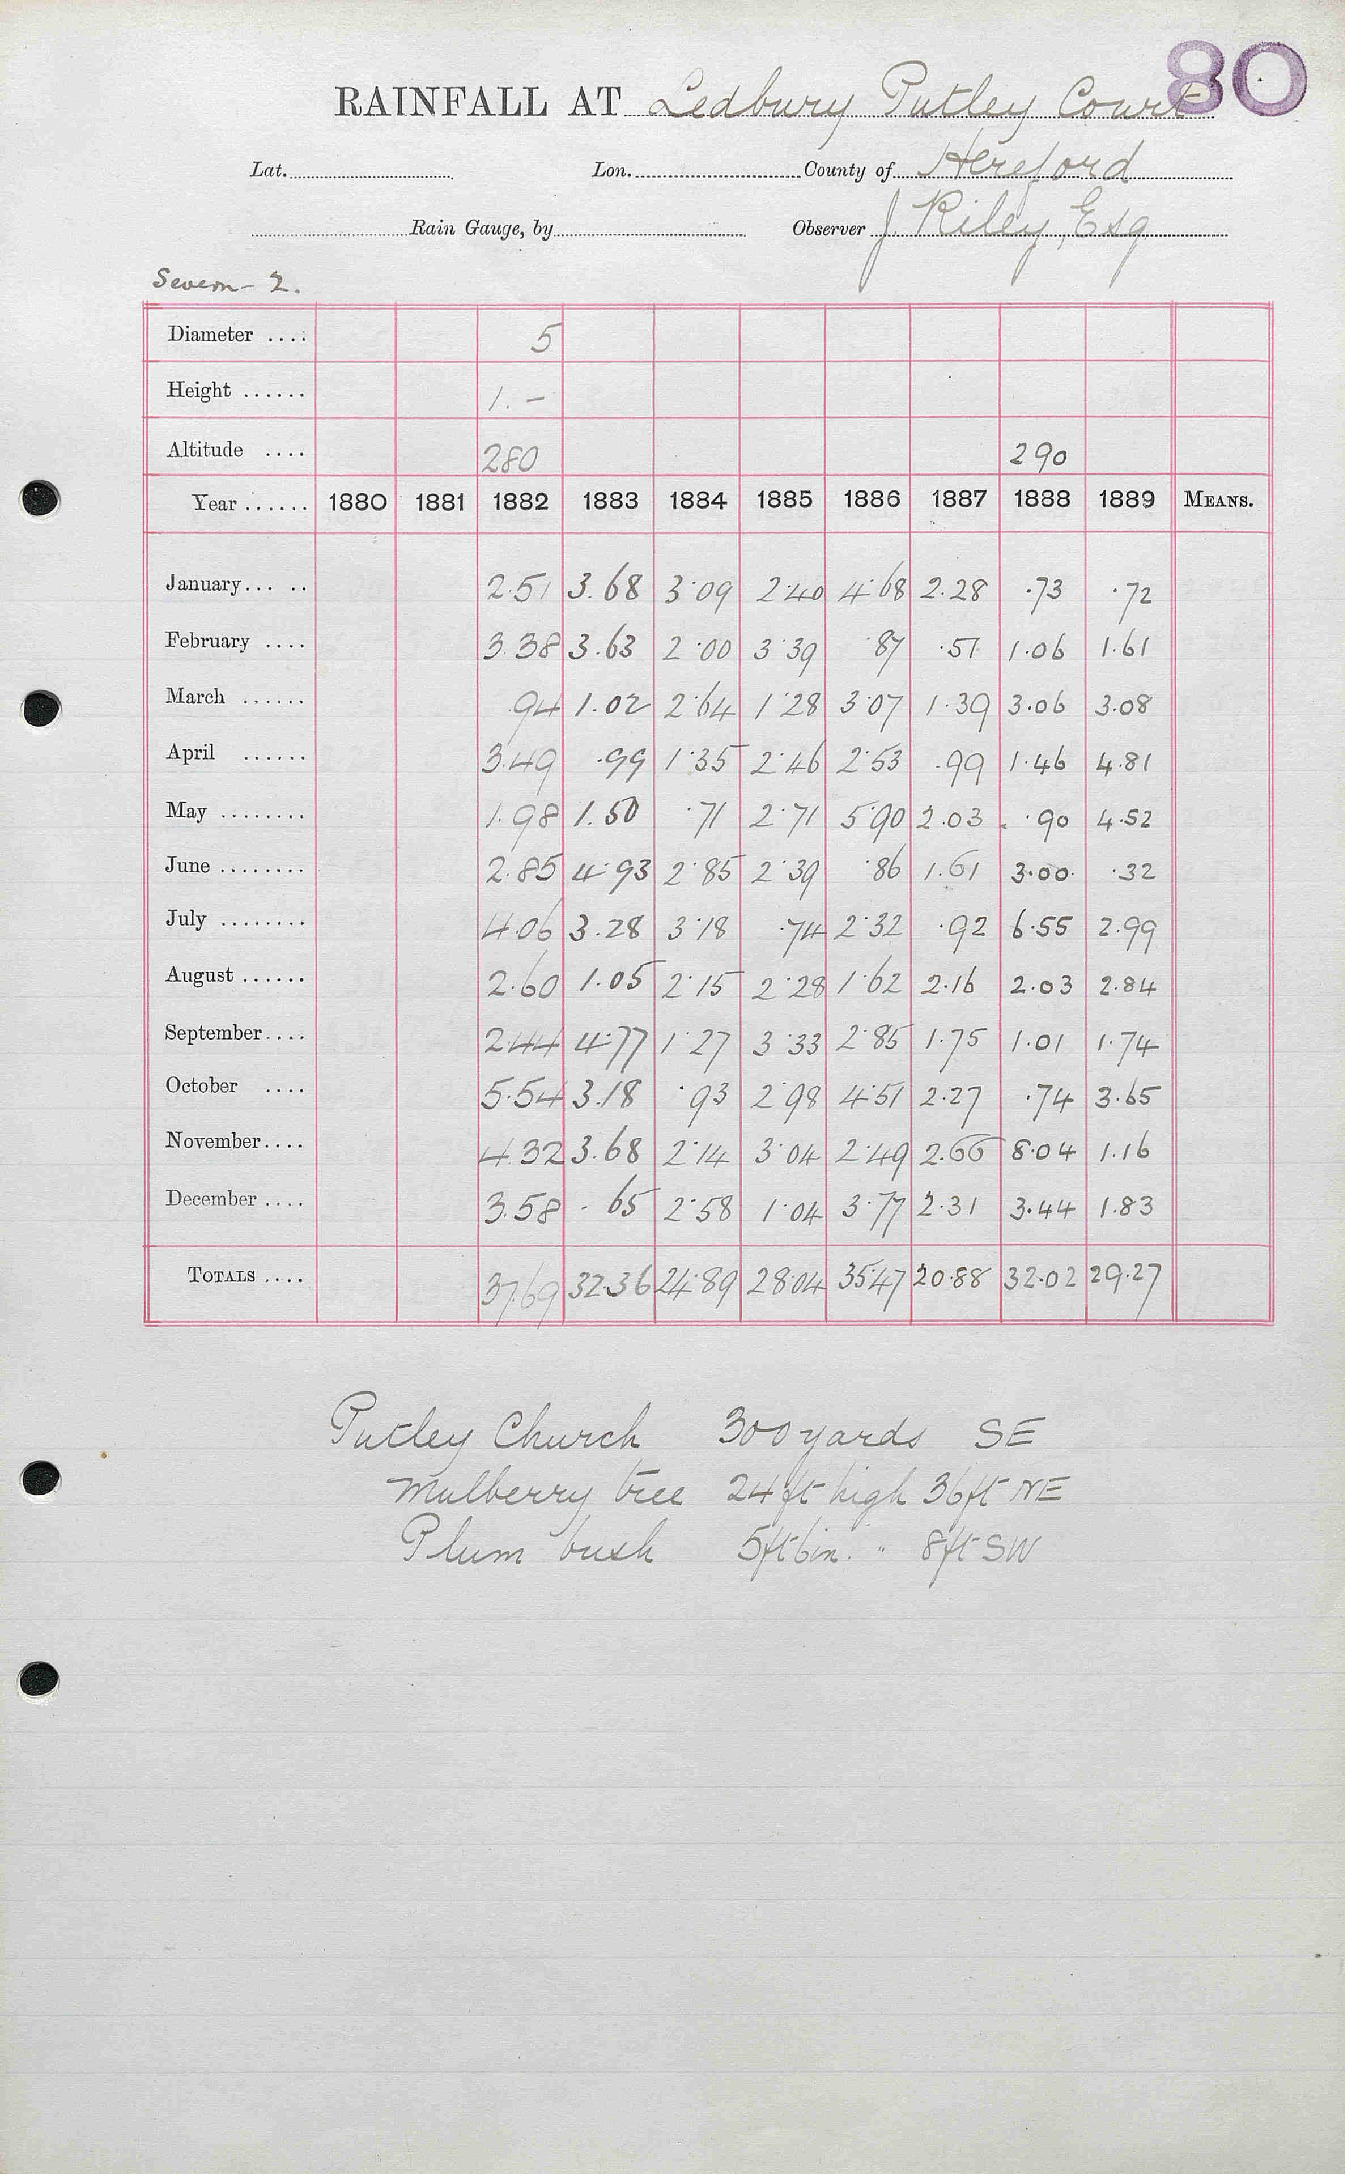 80
RAINFALL AT Ledbury Putley Court
Lat. Lon. County of Hereford
Rain Gauge, by Observer J Riley, Esq
Severn - 2.
Diameter .... 5
Height ...... 1. -
Altitude .... 280 290
Year ...... 1880 1881 1882 1883 1884 1885 1886 1887 1888 1889 MEANS.
January... .. 2.51 3.68 3.09 2.40 4.68 2.28 .73 .72
February .... 3.38 3.63 2.00 3.39 .87 .51 1.06 1.61
March ...... .94 1.02 2.64 1.28 3.07 1.39 3.06 3.08
April ...... 3.49 .99 1.35 2.46 2.53 .99 1.46 4.81
May ........ 1.98 1.50 .71 2.71 5.90 2.03 .90 4.52
June ........ 2.85 4.93 2.85 2.39 .86 1.61 3.00 .32
July ........ 4.06 3.28 3.18 .74 2.32 .92 6.55 2.99
August ...... 2.60 1.05 2.15 2.28 1.62 2.16 2.03 2.84
September.... 2.44 4.77 1.27 3.33 2.85 1.75 1.01 1.74
October .... 5.54 3.18 .93 2.98 4.51 2.27 .74 3.65
November.... 4.32 3.68 2.14 3.04 2.49 2.66 8.04 1.16
December .... 3.58 .65 2.58 1.04 3.77 2.31 3.44 1.83
TOTALS .... 37.69 32.36 24.89 28.04 35.47 20.88 32.02 29.27
Putley Church 300 yards SE
Mulberry tree 24 ft high 36 ft NE
Plum bush 5 ft 6 in. " 8 ft SW